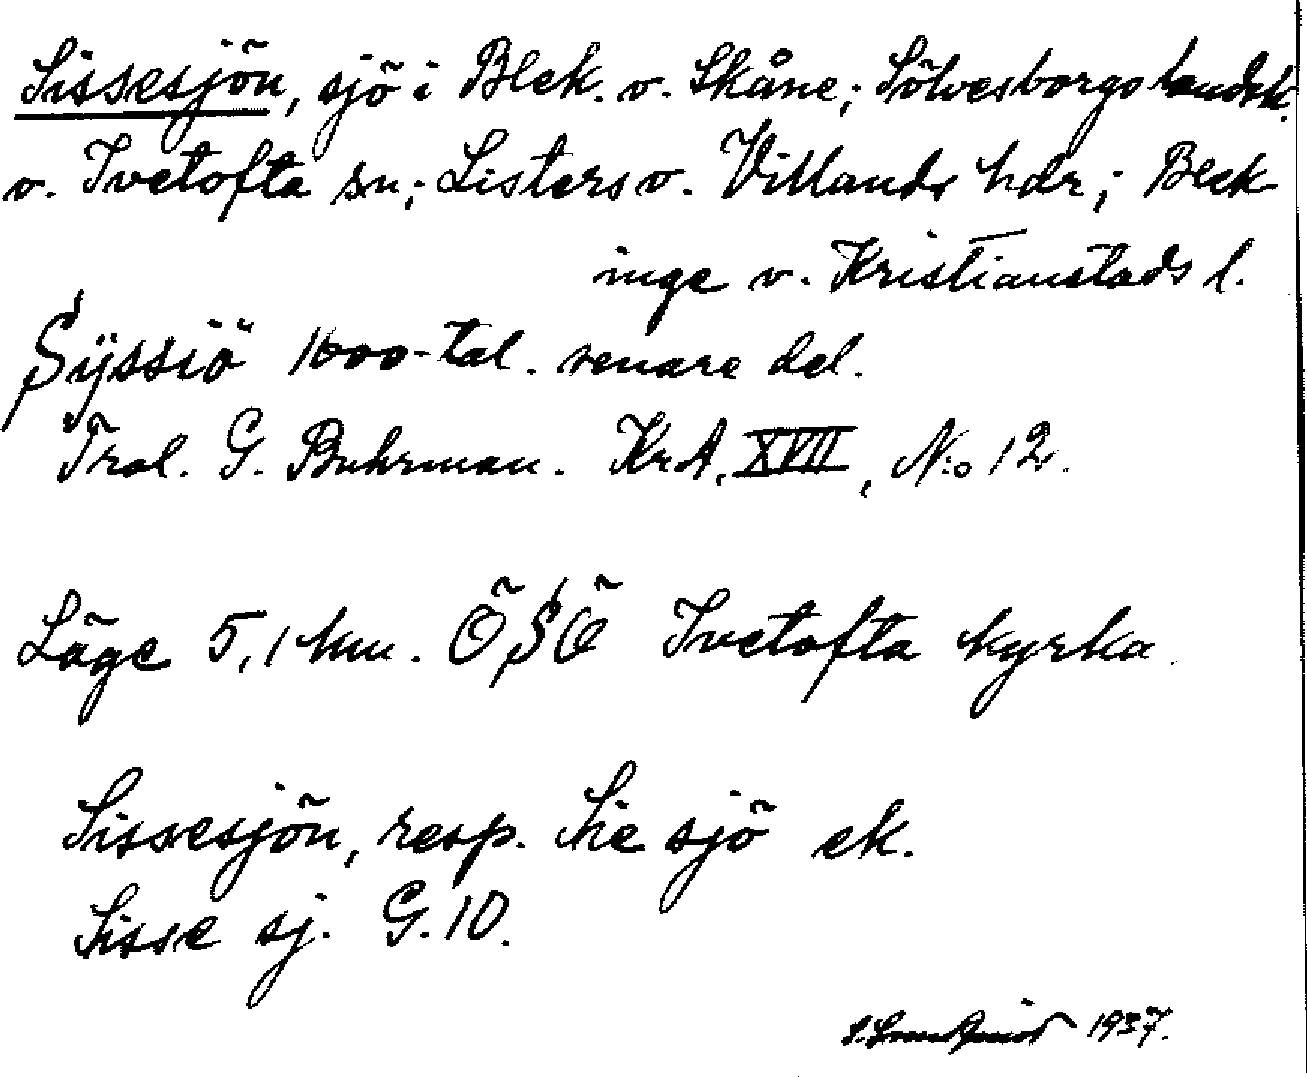 Sissesjön, sjö i Blek. o. Skåne; Sölvesborgs landsk.
o. Ivetofta sn; Listers o. Villands hdr; Blek
inge o. Kristianstads l.
Sÿssiö 1600-tal. senare del.
Trol. G. Buhrman. KrA. XVII, N:o 12.
Läge 5,1 km. ÖSÖ Ivetofta kyrka.
Sissesjön, resp. Sie sjö ek.
Sisse sj. G.10.
1937.